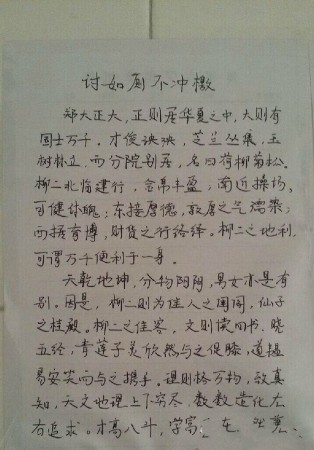 讨如厕不冲檄
郑大正大，正则居华夏之中，大则有
国士万千，才俊泱泱，芝兰丛集，玉
树林立，而分院别居，名曰荷柳菊松，
柳二北临建行，含帛丰盈，南近操场，
可健体魄；东接厚德，敦厚之气濡染；
西接商博，财货之行络绎。柳二之地利，
可谓万千便利于一身。
天乾地坤，分物阴阳，男女亦是有
别。因是，柳二则为佳人之闺阁，仙子
之桂殿。柳二之佳客，文则读四书，晓
五经，青莲子美欣然与之促膝，道韫
易安笑而与之携手。理则格万物，致真
知，天文地理上下穷尽，数数造化左
右追求。才高八斗，学富